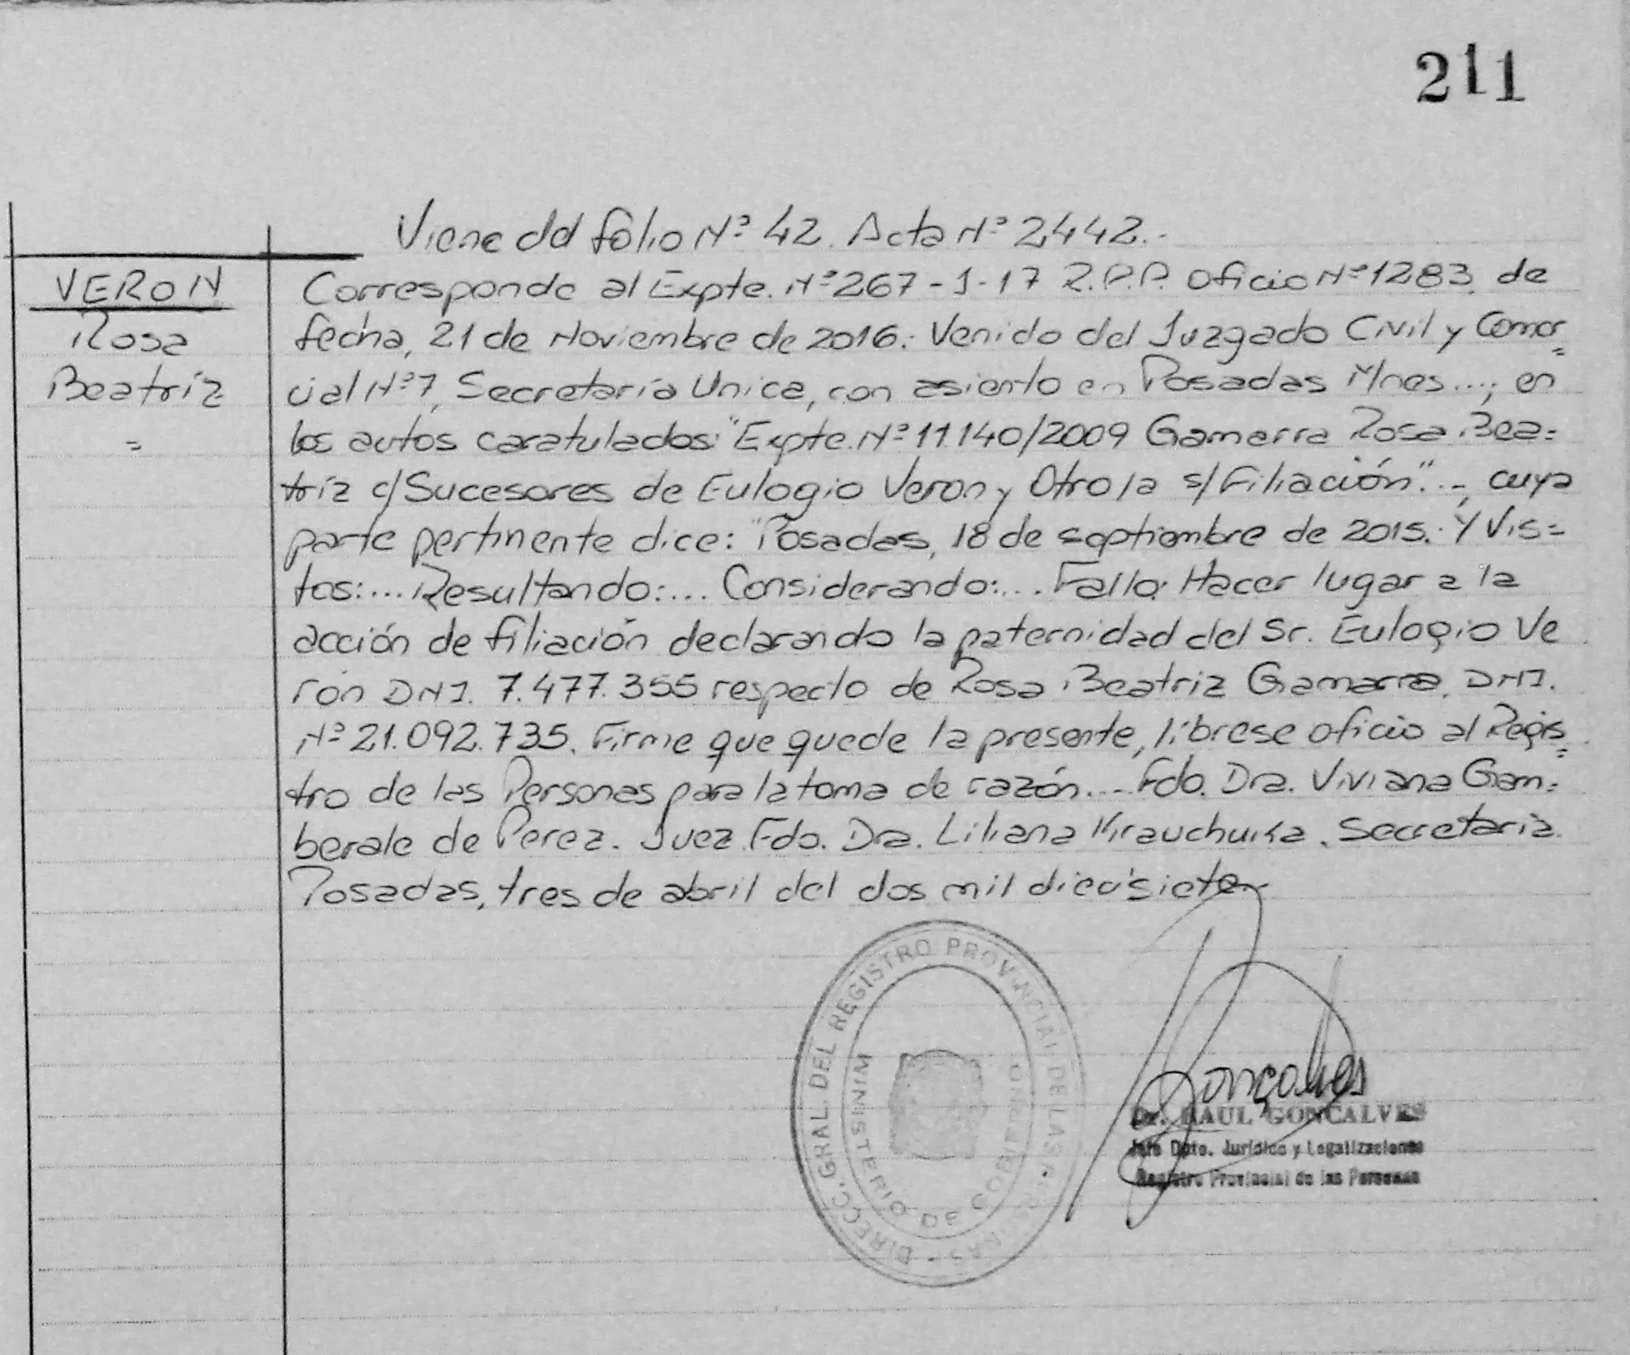 211
Viene del folio Nº 42. Acta Nº 2442.-
VERON
Rosa
Beatriz
=
Corresponde al Expte. Nº 267-J-17 R.P.P. Oficio Nº 1283, de
fecha, 21 de Noviembre de 2016.- Venido del Juzgado Civil y Comer=
cial Nº 7, Secretaría Unica, con asiento en Posadas Mnes...; en
los autos caratulados: "Expte. Nº 11.140/2009 Gamarra Rosa Bea=
triz c/Sucesores de Eulogio Veron y Otro/a s/Filiación".-, cuya
parte pertinente dice: "Posadas, 18 de septiembre de 2015. Y Vis=
tos:... Resultando:... Considerando:... Fallo: Hacer lugar a la
acción de filiación declarando la paternidad del Sr. Eulogio Ve
rón DNI. 7.477.355 respecto de Rosa Beatriz Gamarra, DNI.
Nº 21.092.735. Firme que quede la presente, líbrese oficio al Regis=
tro de las Personas para la toma de razón...- Fdo. Dra. Viviana Gam=
berale de Perez. Juez. Fdo. Dra. Liliana Krauchuka. Secretaria.
Posadas, tres de abril del dos mil diecisiete.-
DIRECC. GRAL. DEL REGISTRO PROVINCIAL DE LAS PERSONAS
MINISTERIO DE GOBIERNO
Gonçalves
Dr. RAUL GONCALVES
Jefe Dpto. Jurídico y Legalizaciones
Registro Provincial de las Personas